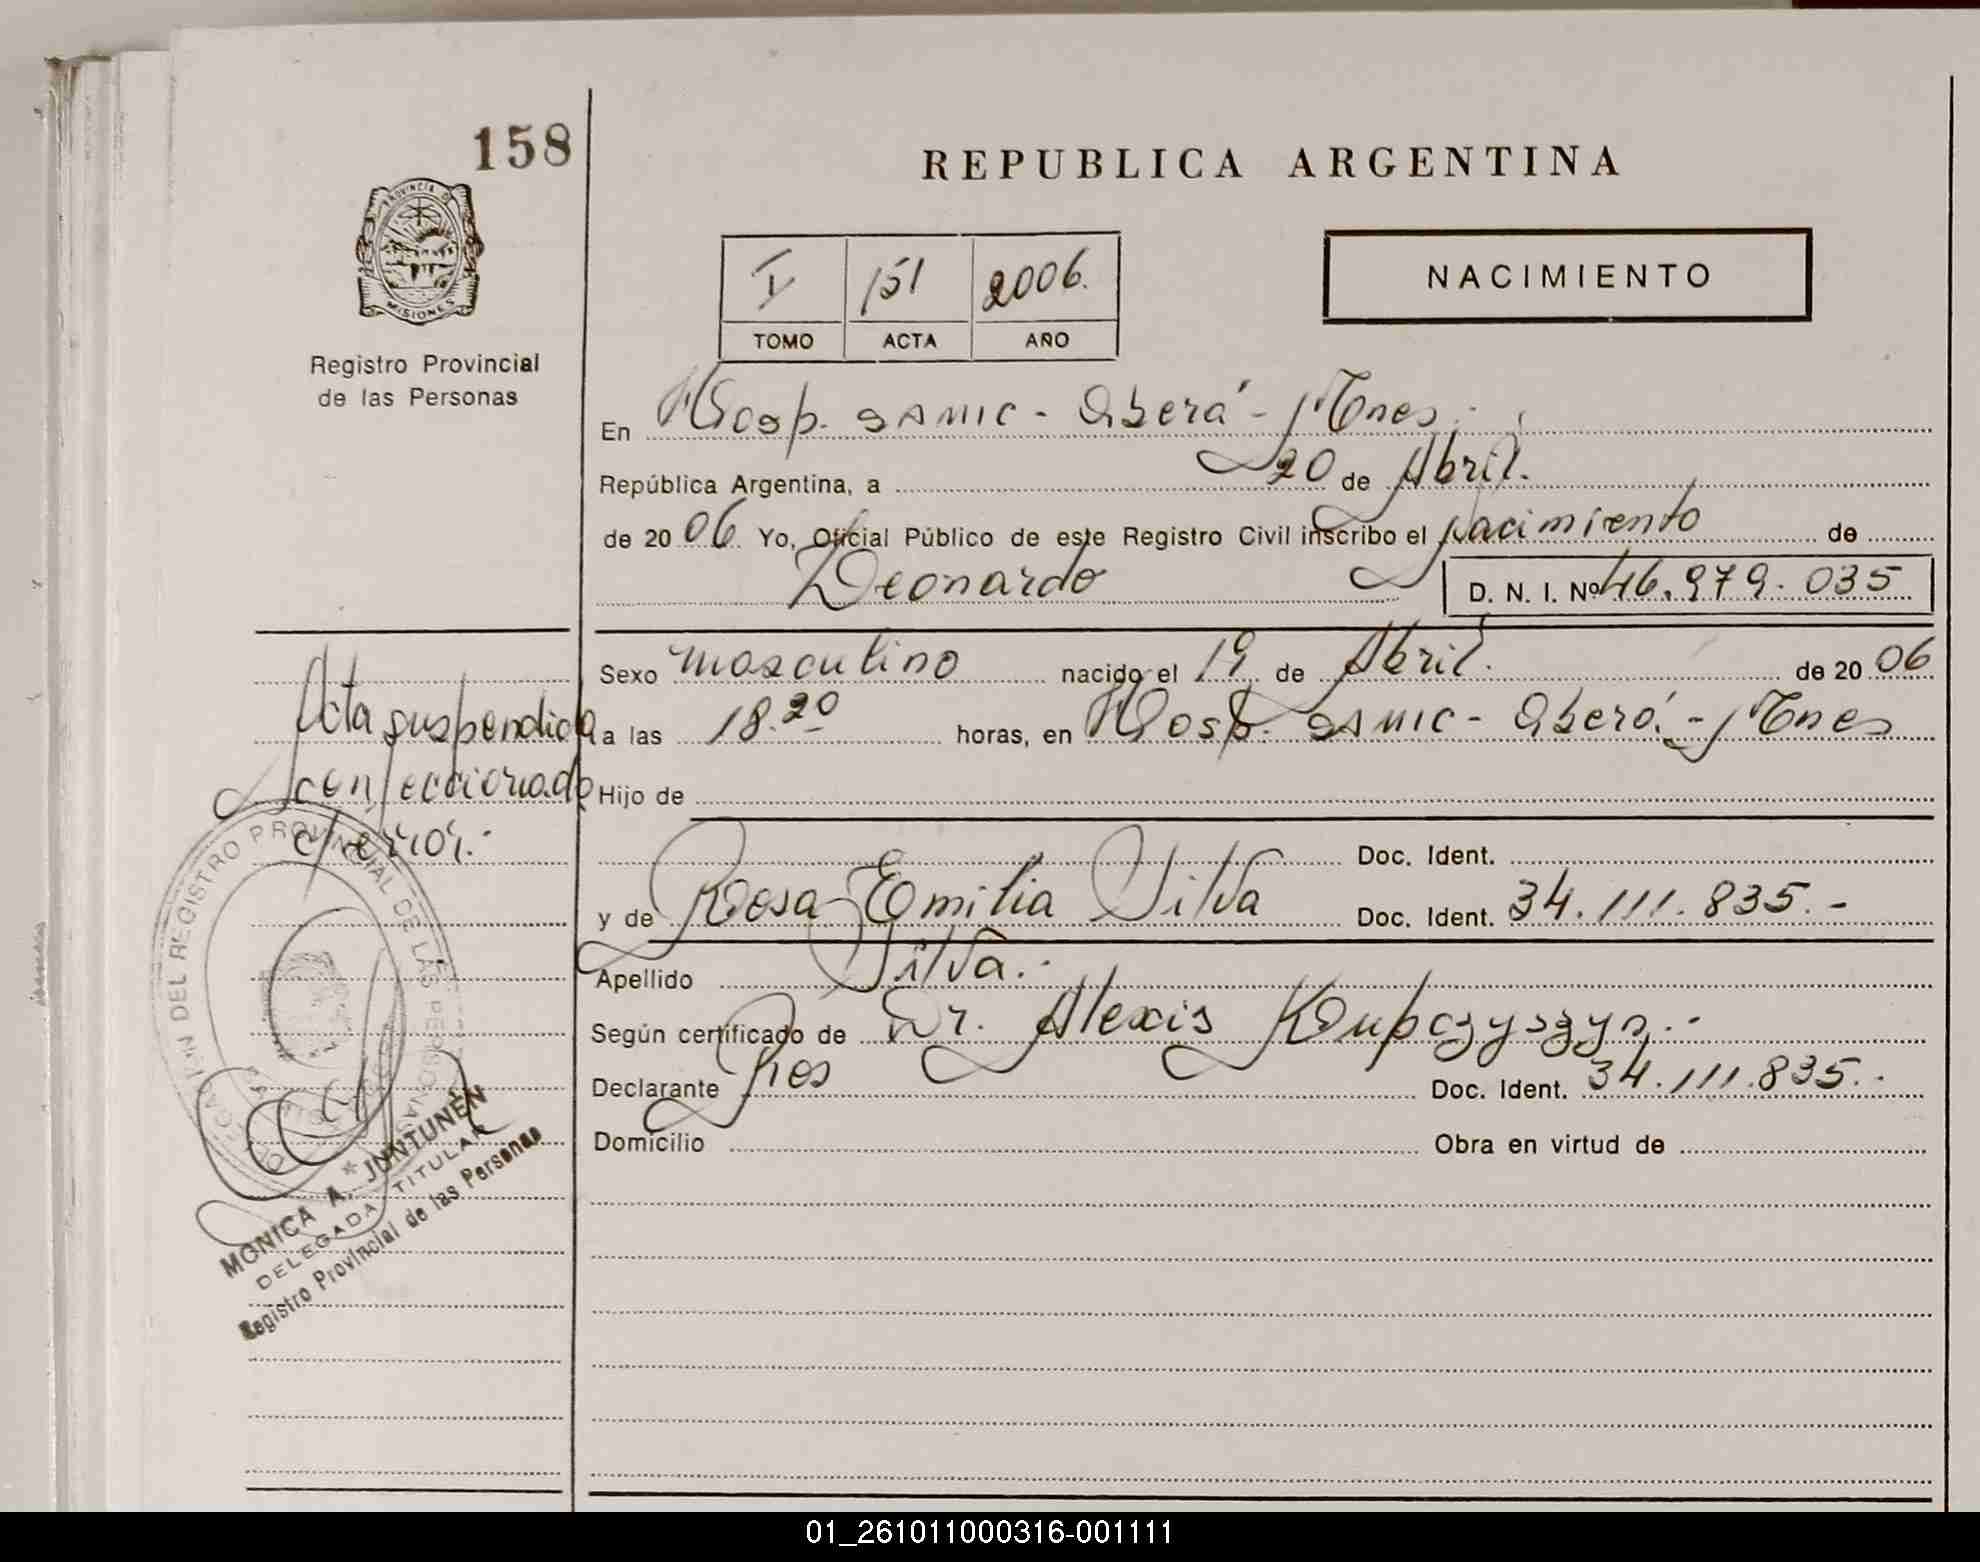 158
REPUBLICA ARGENTINA
PROVINCIA DE
MISIONES
Registro Provincial
de las Personas
I 151 2006.
TOMO ACTA AÑO
NACIMIENTO
En Hosp. SAMIC - Oberá - Mnes.
República Argentina, a 20 de Abril.
de 20 06 Yo, Oficial Público de este Registro Civil inscribo el nacimiento de
Leonardo D. N. I. Nº 46.979.035
Sexo masculino nacido el 19 de Abril. de 20 06
a las 18.20 horas, en Hosp. SAMIC - Oberá - Mnes
Hijo de
Doc. Ident.
y de Rosa Emilia Silva Doc. Ident. 34.111.835.-
Apellido Silva.-
Según certificado de Dr. Alexis Kupczyszyn.-
Declarante Doc. Ident. 34.111.835.-
Domicilio Obra en virtud de
Acta suspendida
confeccionado
c/error.-
DEL REGISTRO PROVINCIAL DE LAS PERSONAS
MONICA A. JUNTUNEN
DELEGADA TITULAR
Registro Provincial de las Personas
01_261011000316-001111